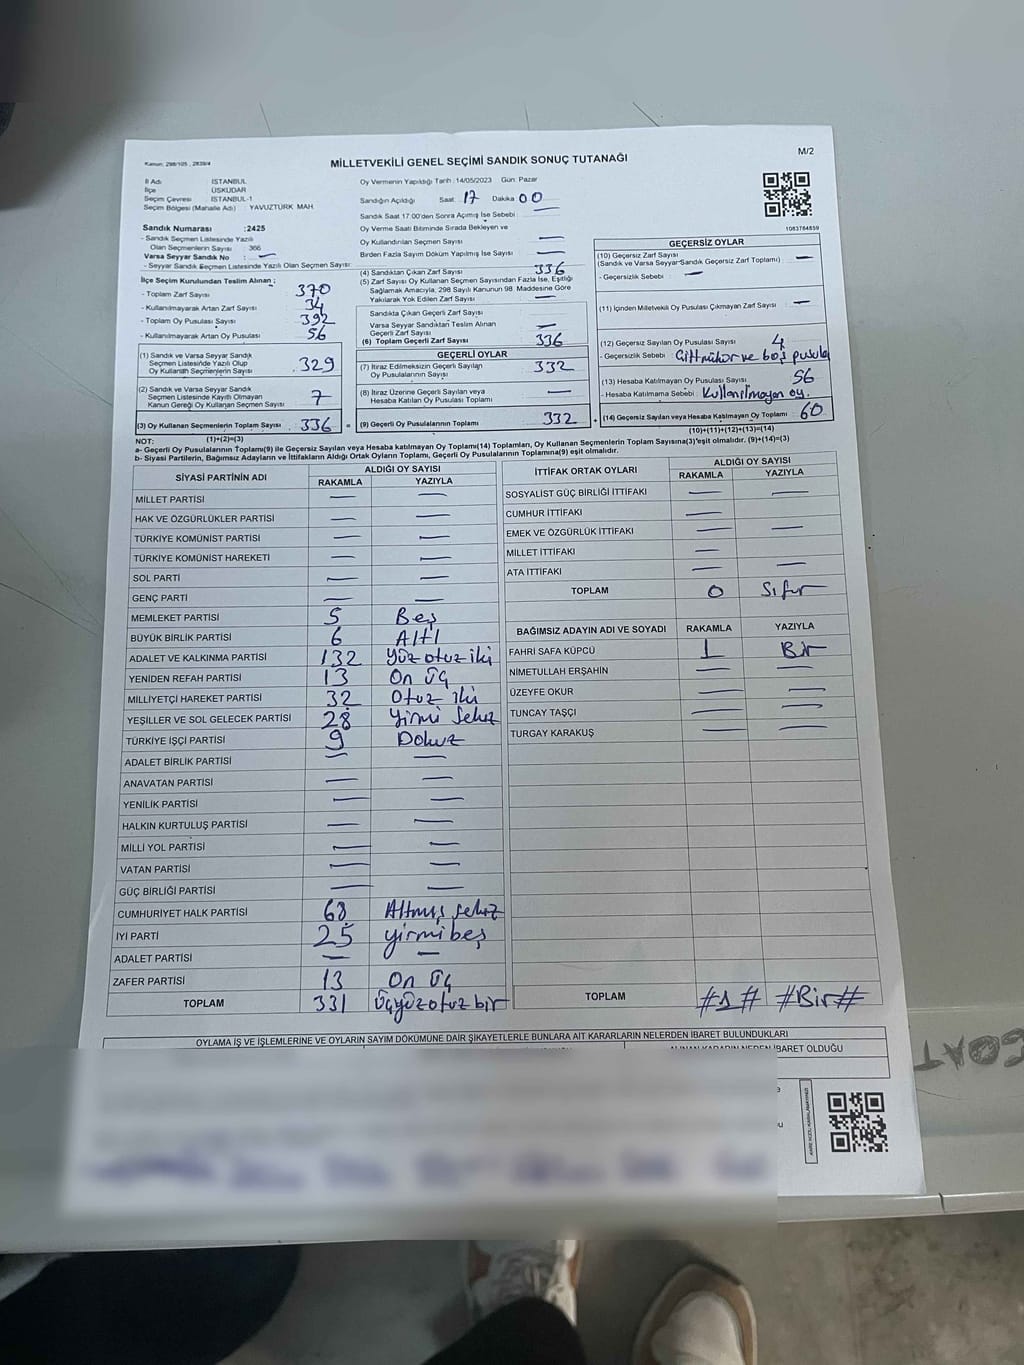 Kanun: 298/105 , 2839/4
MİLLETVEKİLİ GENEL SEÇİMİ SANDIK SONUÇ TUTANAĞI
M/2
İl Adı : İSTANBUL
İlçe : ÜSKÜDAR
Seçim Çevresi : İSTANBUL-1
Seçim Bölgesi (Mahalle Adı) : YAVUZTÜRK MAH.
Sandık Numarası : 2425
- Sandık Seçmen Listesinde Yazılı
Olan Seçmenlerin Sayısı : 366
Varsa Seyyar Sandık No : —
- Seyyar Sandık Seçmen Listesinde Yazılı Olan Seçmen Sayısı:
İlçe Seçim Kurulundan Teslim Alınan ;
- Toplam Zarf Sayısı : 370
- Kullanılmayarak Artan Zarf Sayısı : 34
- Toplam Oy Pusulası Sayısı : 392
- Kullanılmayarak Artan Oy Pusulası : 56
(1) Sandık ve Varsa Seyyar Sandık
Seçmen Listesinde Yazılı Olup
Oy Kullanan Seçmenlerin Sayısı : 329
(2) Sandık ve Varsa Seyyar Sandık
Seçmen Listesinde Kayıtlı Olmayan
Kanun Gereği Oy Kullanan Seçmen Sayısı : 7
(3) Oy Kullanan Seçmenlerin Toplam Sayısı : 336
(1)+(2)=(3)
Oy Vermenin Yapıldığı Tarih :14/05/2023 Gün: Pazar
Sandığın Açıldığı Saat : 17 Dakika : 00
Sandık Saat 17:00'den Sonra Açılmış İse Sebebi : —
Oy Verme Saati Bitiminde Sırada Bekleyen ve
Oy Kullandırılan Seçmen Sayısı : —
Birden Fazla Sayım Döküm Yapılmış İse Sayısı : —
(4) Sandıktan Çıkan Zarf Sayısı : 336
(5) Zarf Sayısı Oy Kullanan Seçmen Sayısından Fazla İse, Eşitliği
Sağlamak Amacıyla, 298 Sayılı Kanunun 98. Maddesine Göre
Yakılarak Yok Edilen Zarf Sayısı : —
Sandıkta Çıkan Geçerli Zarf Sayısı :
Varsa Seyyar Sandıktan Teslim Alınan
Geçerli Zarf Sayısı : —
(6) Toplam Geçerli Zarf Sayısı : 336
GEÇERLİ OYLAR
(7) İtiraz Edilmeksizin Geçerli Sayılan
Oy Pusulalarının Sayısı : 332
(8) İtiraz Üzerine Geçerli Sayılan veya
Hesaba Katılan Oy Pusulası Toplamı : —
= (9) Geçerli Oy Pusulalarının Toplamı : 332
1083784859
GEÇERSİZ OYLAR
(10) Geçersiz Zarf Sayısı
(Sandık ve Varsa Seyyar Sandık Geçersiz Zarf Toplamı) : —
- Geçersizlik Sebebi : —
(11) İçinden Milletvekili Oy Pusulası Çıkmayan Zarf Sayısı : —
(12) Geçersiz Sayılan Oy Pusulası Sayısı : 4
- Geçersizlik Sebebi : Çift mühür ve boş pusula
(13) Hesaba Katılmayan Oy Pusulası Sayısı : 56
- Hesaba Katılmama Sebebi : Kullanılmayan oy.
+ (14) Geçersiz Sayılan veya Hesaba Katılmayan Oy Toplamı : 60
(10)+(11)+(12)+(13)=(14)
NOT:
a- Geçerli Oy Pusulalarının Toplamı(9) ile Geçersiz Sayılan veya Hesaba katılmayan Oy Toplamı(14) Toplamları, Oy Kullanan Seçmenlerin Toplam Sayısına(3) eşit olmalıdır. (9)+(14)=(3)
b- Siyasi Partilerin, Bağımsız Adayların ve İttifakların Aldığı Ortak Oyların Toplamı, Geçerli Oy Pusulalarının Toplamına(9) eşit olmalıdır.
SİYASİ PARTİNİN ADI ALDIĞI OY SAYISI
RAKAMLA YAZIYLA
MİLLET PARTİSİ — —
HAK VE ÖZGÜRLÜKLER PARTİSİ — —
TÜRKİYE KOMÜNİST PARTİSİ — —
TÜRKİYE KOMÜNİST HAREKETİ — —
SOL PARTİ — —
GENÇ PARTİ — —
MEMLEKET PARTİSİ 5 Beş
BÜYÜK BİRLİK PARTİSİ 6 Altı
ADALET VE KALKINMA PARTİSİ 132 Yüz otuz iki
YENİDEN REFAH PARTİSİ 13 On üç
MİLLİYETÇİ HAREKET PARTİSİ 32 Otuz iki
YEŞİLLER VE SOL GELECEK PARTİSİ 28 Yirmi Sekiz
TÜRKİYE İŞÇİ PARTİSİ 9 Dokuz
ADALET BİRLİK PARTİSİ — —
ANAVATAN PARTİSİ — —
YENİLİK PARTİSİ — —
HALKIN KURTULUŞ PARTİSİ — —
MİLLİ YOL PARTİSİ — —
VATAN PARTİSİ — —
GÜÇ BİRLİĞİ PARTİSİ — —
CUMHURİYET HALK PARTİSİ 68 Altmış sekiz
İYİ PARTİ 25 yirmi beş
ADALET PARTİSİ — —
ZAFER PARTİSİ 13 On üç
TOPLAM 331 üçyüz otuz bir
İTTİFAK ORTAK OYLARI ALDIĞI OY SAYISI
RAKAMLA YAZIYLA
SOSYALİST GÜÇ BİRLİĞİ İTTİFAKI — —
CUMHUR İTTİFAKI —
EMEK VE ÖZGÜRLÜK İTTİFAKI — —
MİLLET İTTİFAKI —
ATA İTTİFAKI — —
TOPLAM 0 Sıfır
BAĞIMSIZ ADAYIN ADI VE SOYADI RAKAMLA YAZIYLA
FAHRİ SAFA KÜPCÜ 1 Bir
NİMETULLAH ERŞAHİN — —
ÜZEYFE OKUR — —
TUNCAY TAŞÇI — —
TURGAY KARAKUŞ — —
TOPLAM #1# #Bir#
OYLAMA İŞ VE İŞLEMLERİNE VE OYLARIN SAYIM DÖKÜMÜNE DAİR ŞİKAYETLERLE BUNLARA AİT KARARLARIN NELERDEN İBARET BULUNDUKLARI
ALINAN KARARIN NEDEN İBARET OLDUĞU